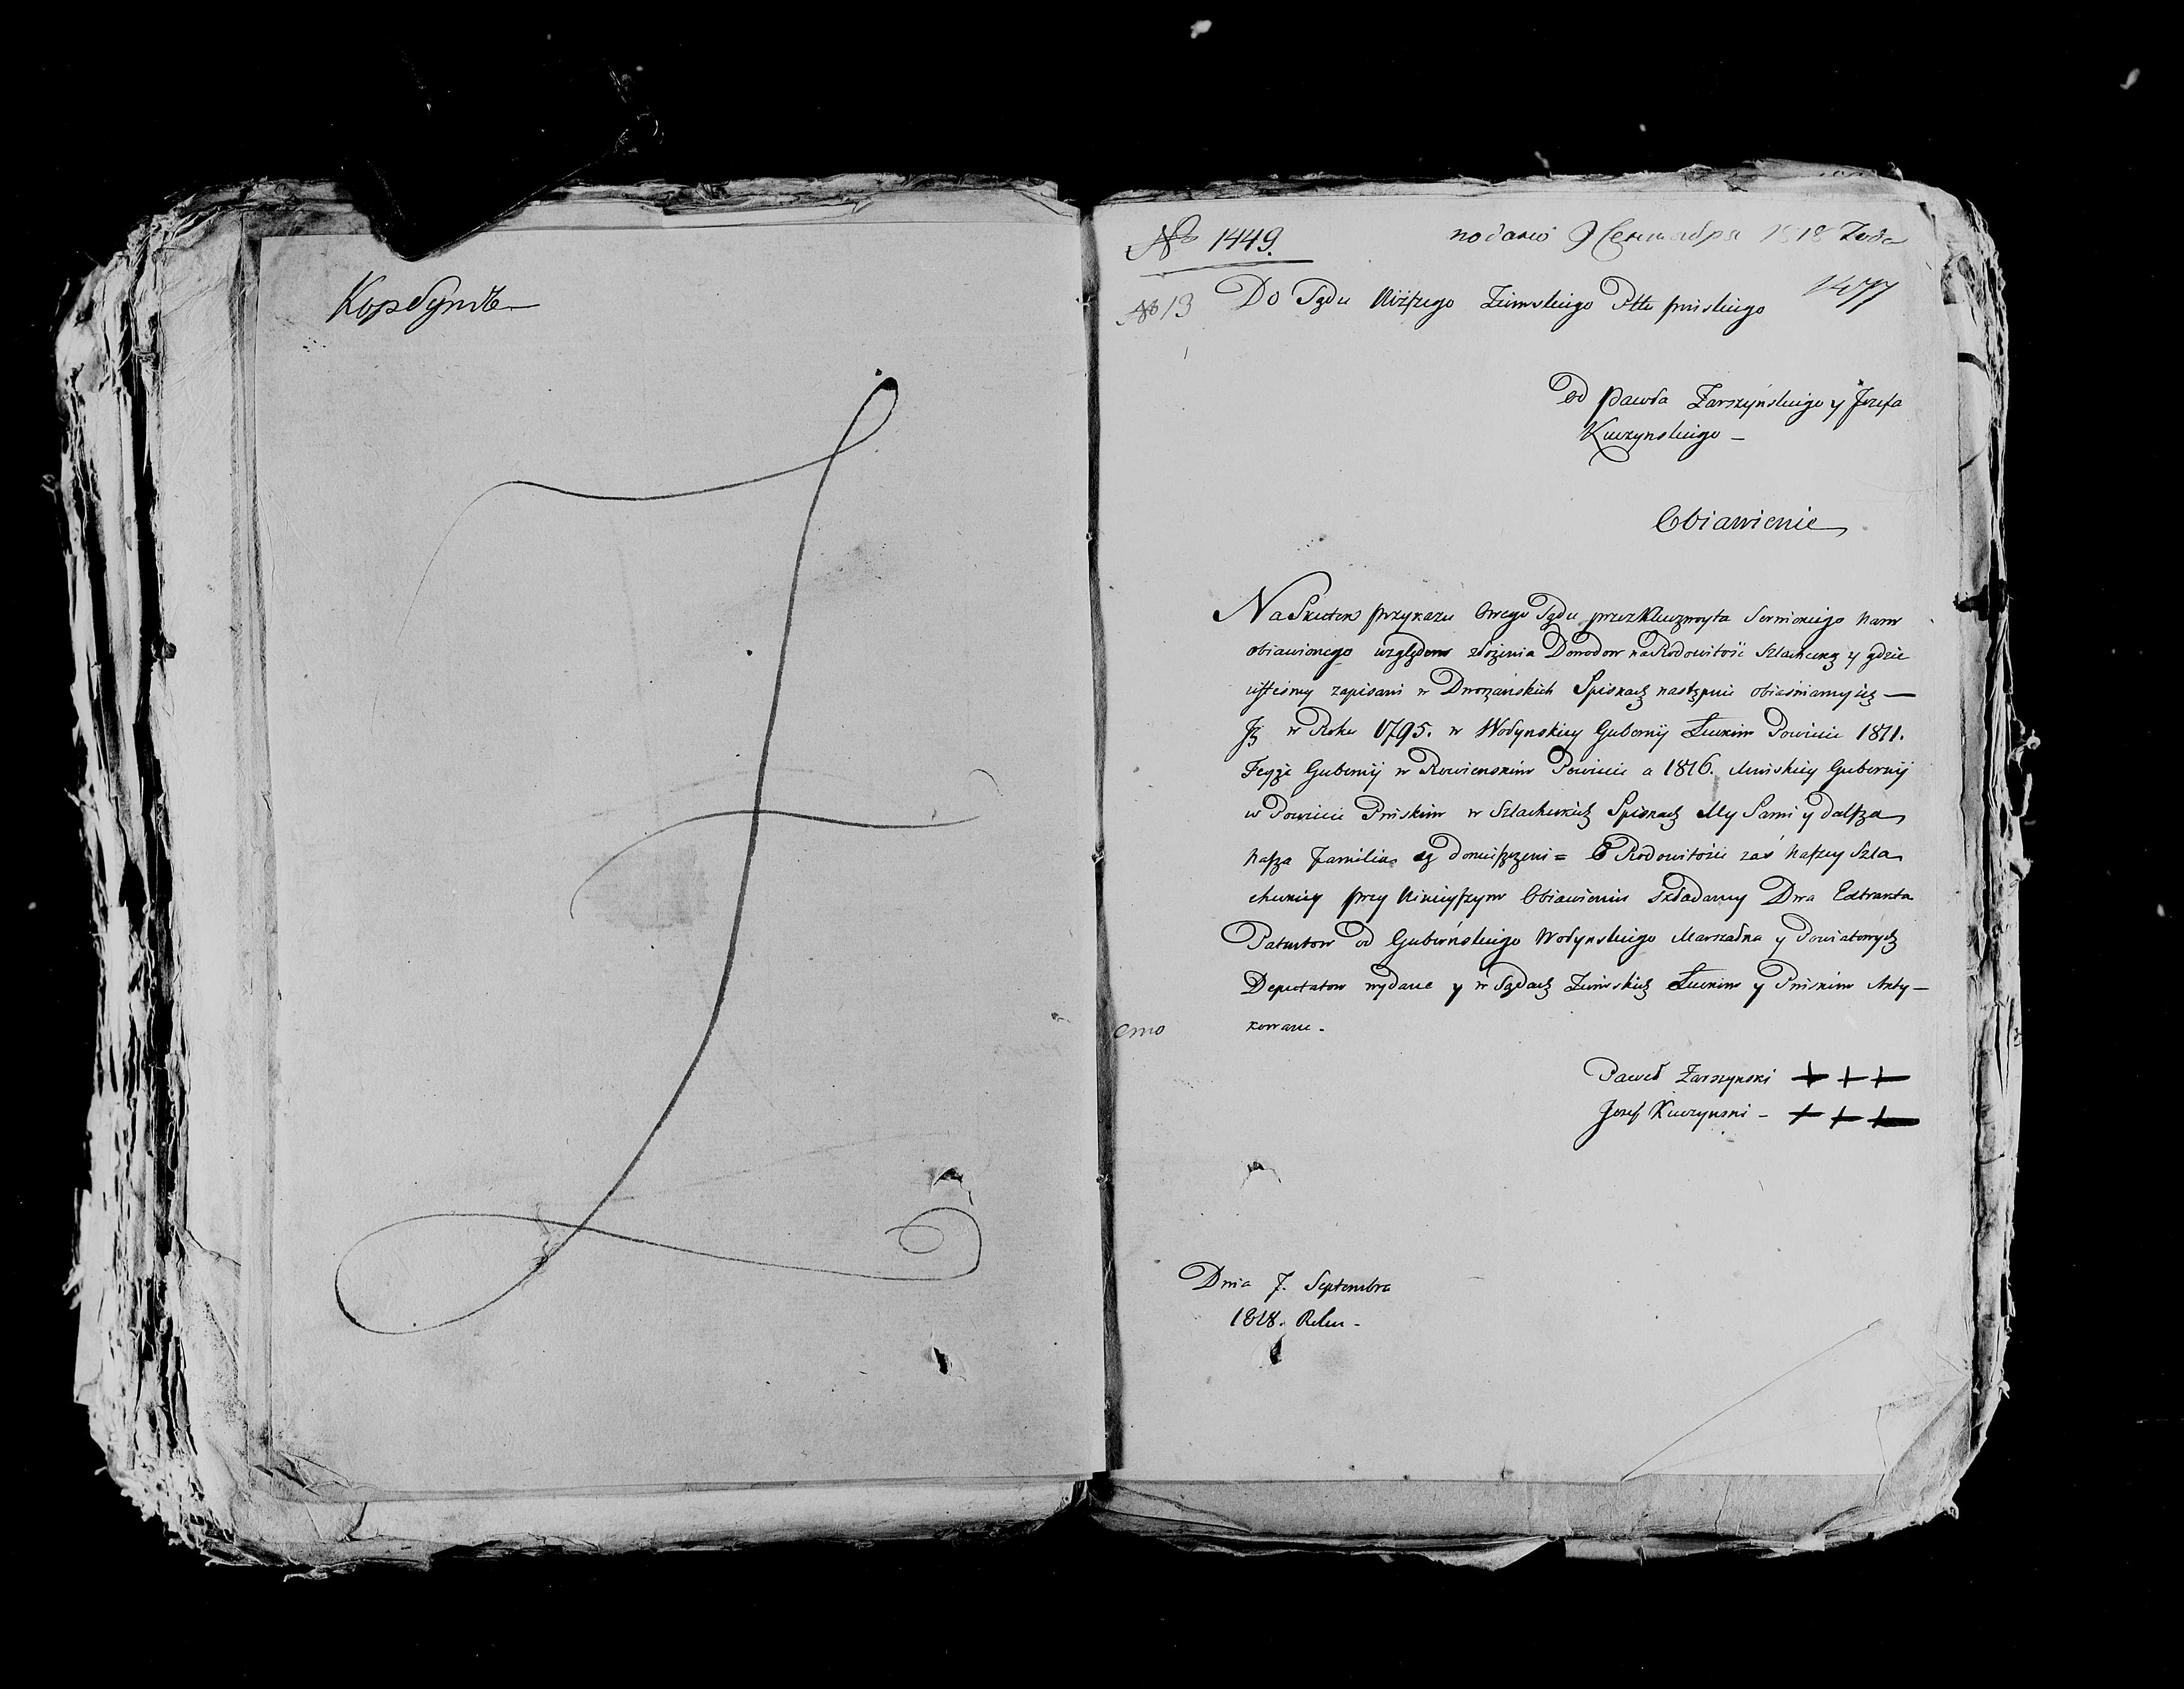 Корбутъ
№ 1449.
подано 9 Сентября 1818 Года
1477
№ 13 Do Sądu Niższego Ziemskiego Pttu pińskiego
Od Pawła Zarszyńskiego y Jozefa
Kuczynskiego –
Obiawienie
Na Skutek przykazu Onego Sądu przez Kluczwoyta nam
obiawionego względem złożenia Dowodow na Rodowitość Szlachecką y gdzie
iesteśmy zapisani w Dworzańskich Spiskach następnie obiaśniamy się —
Iż w Roku 1795. w Wołynskiey Gubernij Łuckim Powiecie 1811.
Teyże Gubernij w Rowienskim Powiecie a 1816. Minskiey Gubernij
w Powiecie Pinskim w Szlacheckich Spiskach My Sami y dalsza
nasza Familia są domieszczeni = O Rodowitości zaś naszey Szla
checkiey przy ninieyszym Obiawieniu składamy Dwa Extrakta
Patentow od Guberńskiego Wołynskiego Marszałka y Powiatowych
Deputatow wydane y w Sądach Ziemskich Łuckim y Pinskim Akty–
kowane.
Paweł Zarszynski + + +
Jozef Kuczynski – + + +
Dnia 7. Septembra
1818. Roku –